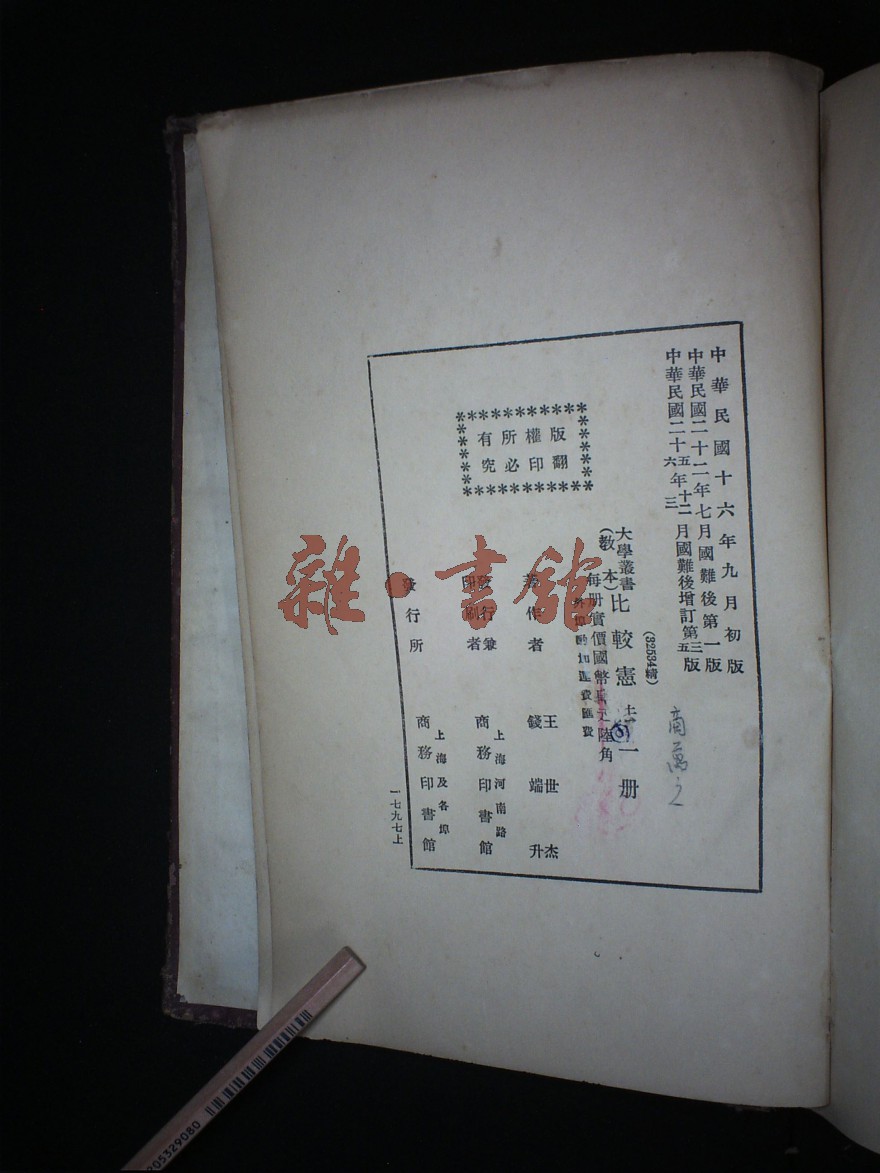 中華民國十六年九月初版
中華民國二十二年七月國難後第一版
中華民國二十五年十二月國難後增訂第三版
六 三 五
(32534精)
大學叢書
(教本)
比較憲法
一冊
每册實價國幣 元陸角
外埠酌加運費匯費
著作者
王世杰
錢端升
發行兼
印刷者
上海河南路
商務印書館
發行所
上海及各埠
商務印書館
版權所有
翻印必究
一七九七上
雜·書館
205329080